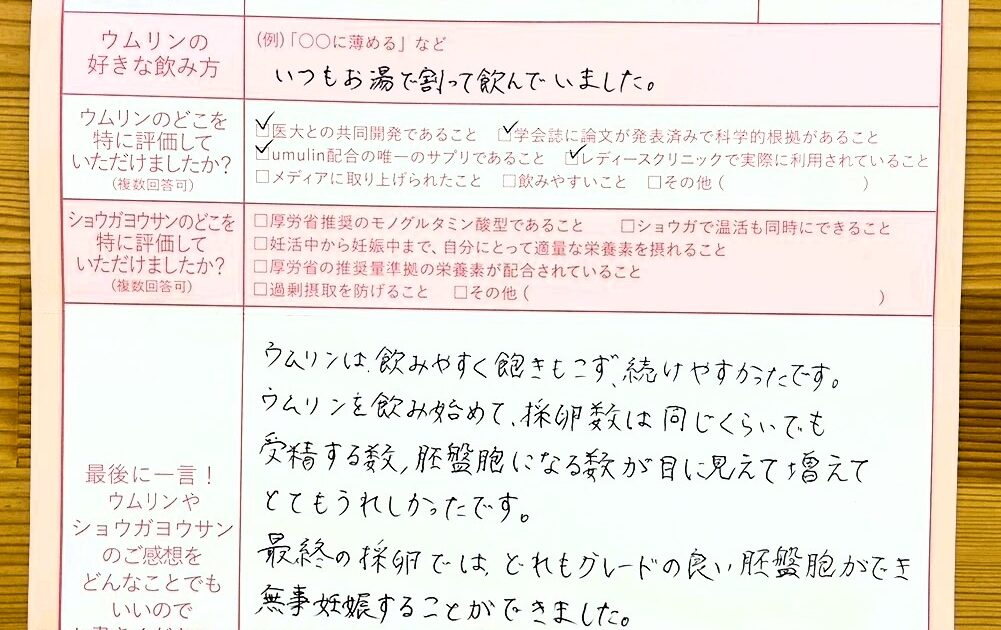 ウムリンの
好きな飲み方
(例)「○○に薄める」など
いつもお湯で割って飲んでいました。
ウムリンのどこを
特に評価して
いただけましたか?
(複数回答可)
☑医大との共同開発であること ☑学会誌に論文が発表済みで科学的根拠があること
☑umulin配合の唯一のサプリであること ☑レディースクリニックで実際に利用されていること
□メディアに取り上げられたこと □飲みやすいこと □その他( )
ショウガヨウサンのどこを
特に評価して
いただけましたか?
(複数回答可)
□厚労省推奨のモノグルタミン酸型であること □ショウガで温活も同時にできること
□妊活中から妊娠中まで、自分にとって適量な栄養素を摂れること
□厚労省の推奨量準拠の栄養素が配合されていること
□過剰摂取を防げること □その他( )
最後に一言!
ウムリンや
ショウガヨウサン
のご感想を
どんなことでも
いいので
ウムリンは、飲みやすく飽きもこず、続けやすかったです。
ウムリンを飲み始めて、採卵数は同じくらいでも
受精する数、胚盤胞になる数が目に見えて増えて
とてもうれしかったです。
最終の採卵では、どれもグレードの良い胚盤胞ができ
無事妊娠することができました。